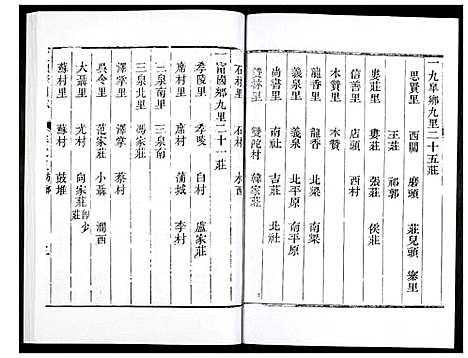 一九皐鄉九里二十五莊
思賢里　西關　磨頭　莊兒頭　寨里
王莊　祁郭
婁莊里　婁莊　張莊　侯莊
信善里　店頭　西村
木贊里　木贊
龍香里　龍香　北梁　南梁
義泉里　義泉　北平原　南平原
尚書里　南社　吉莊　北社
里　雙陀村　韓家莊
石村里　石村　水西
一富國鄉九里二十一莊
季陵里　季村　白村　盧家莊
席村里　席村　蒲城　李村
三泉南里
三泉北里　馮家莊
澤掌里　澤掌　蔡村
吳令里　范家莊　小聶　澗西
大聶里　光村　向家莊
蘇村里　蘇村　鼓堆